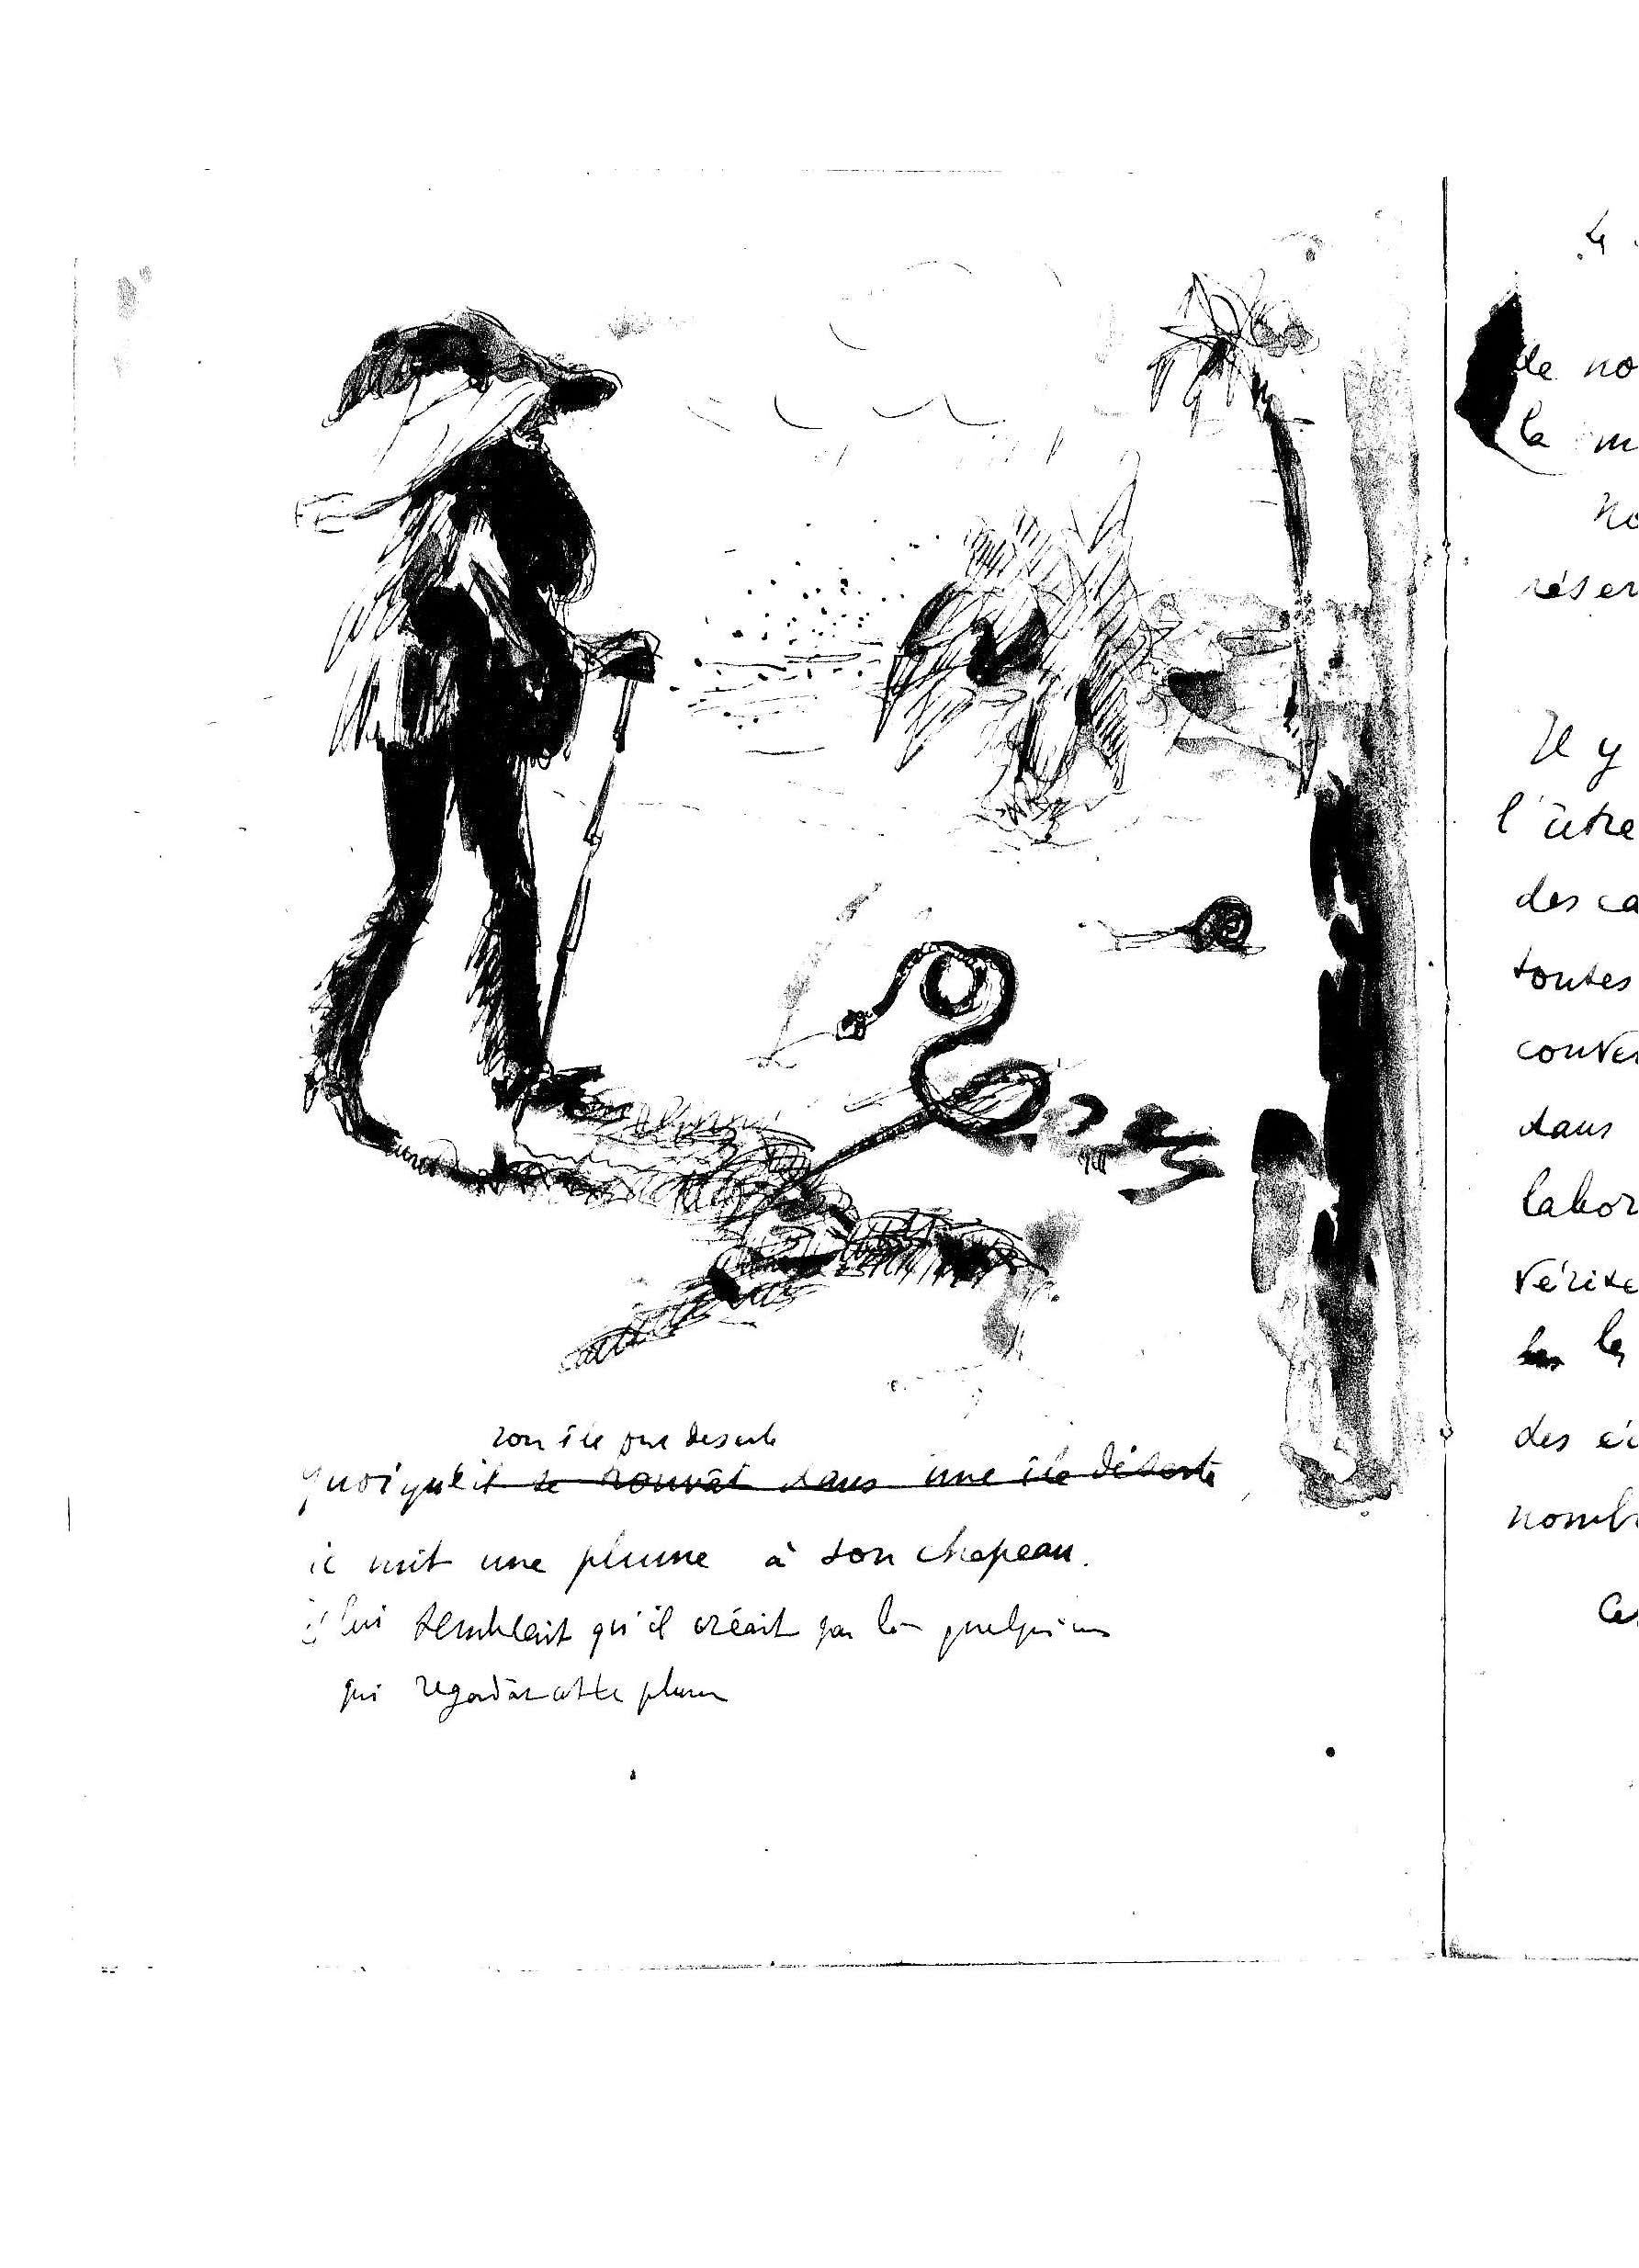 son île fut déserte
Quoiqu'il se trouvât dans une île déserte,
il mit une plume à son chapeau.
il lui semblait qu'il créait par là quelqu'un
qui regardât cette plume
Le
de no
la m
No
réser
Il y
l'être
des ca
toutes
conver
dans
labor
vérité
les
des éc
nomb